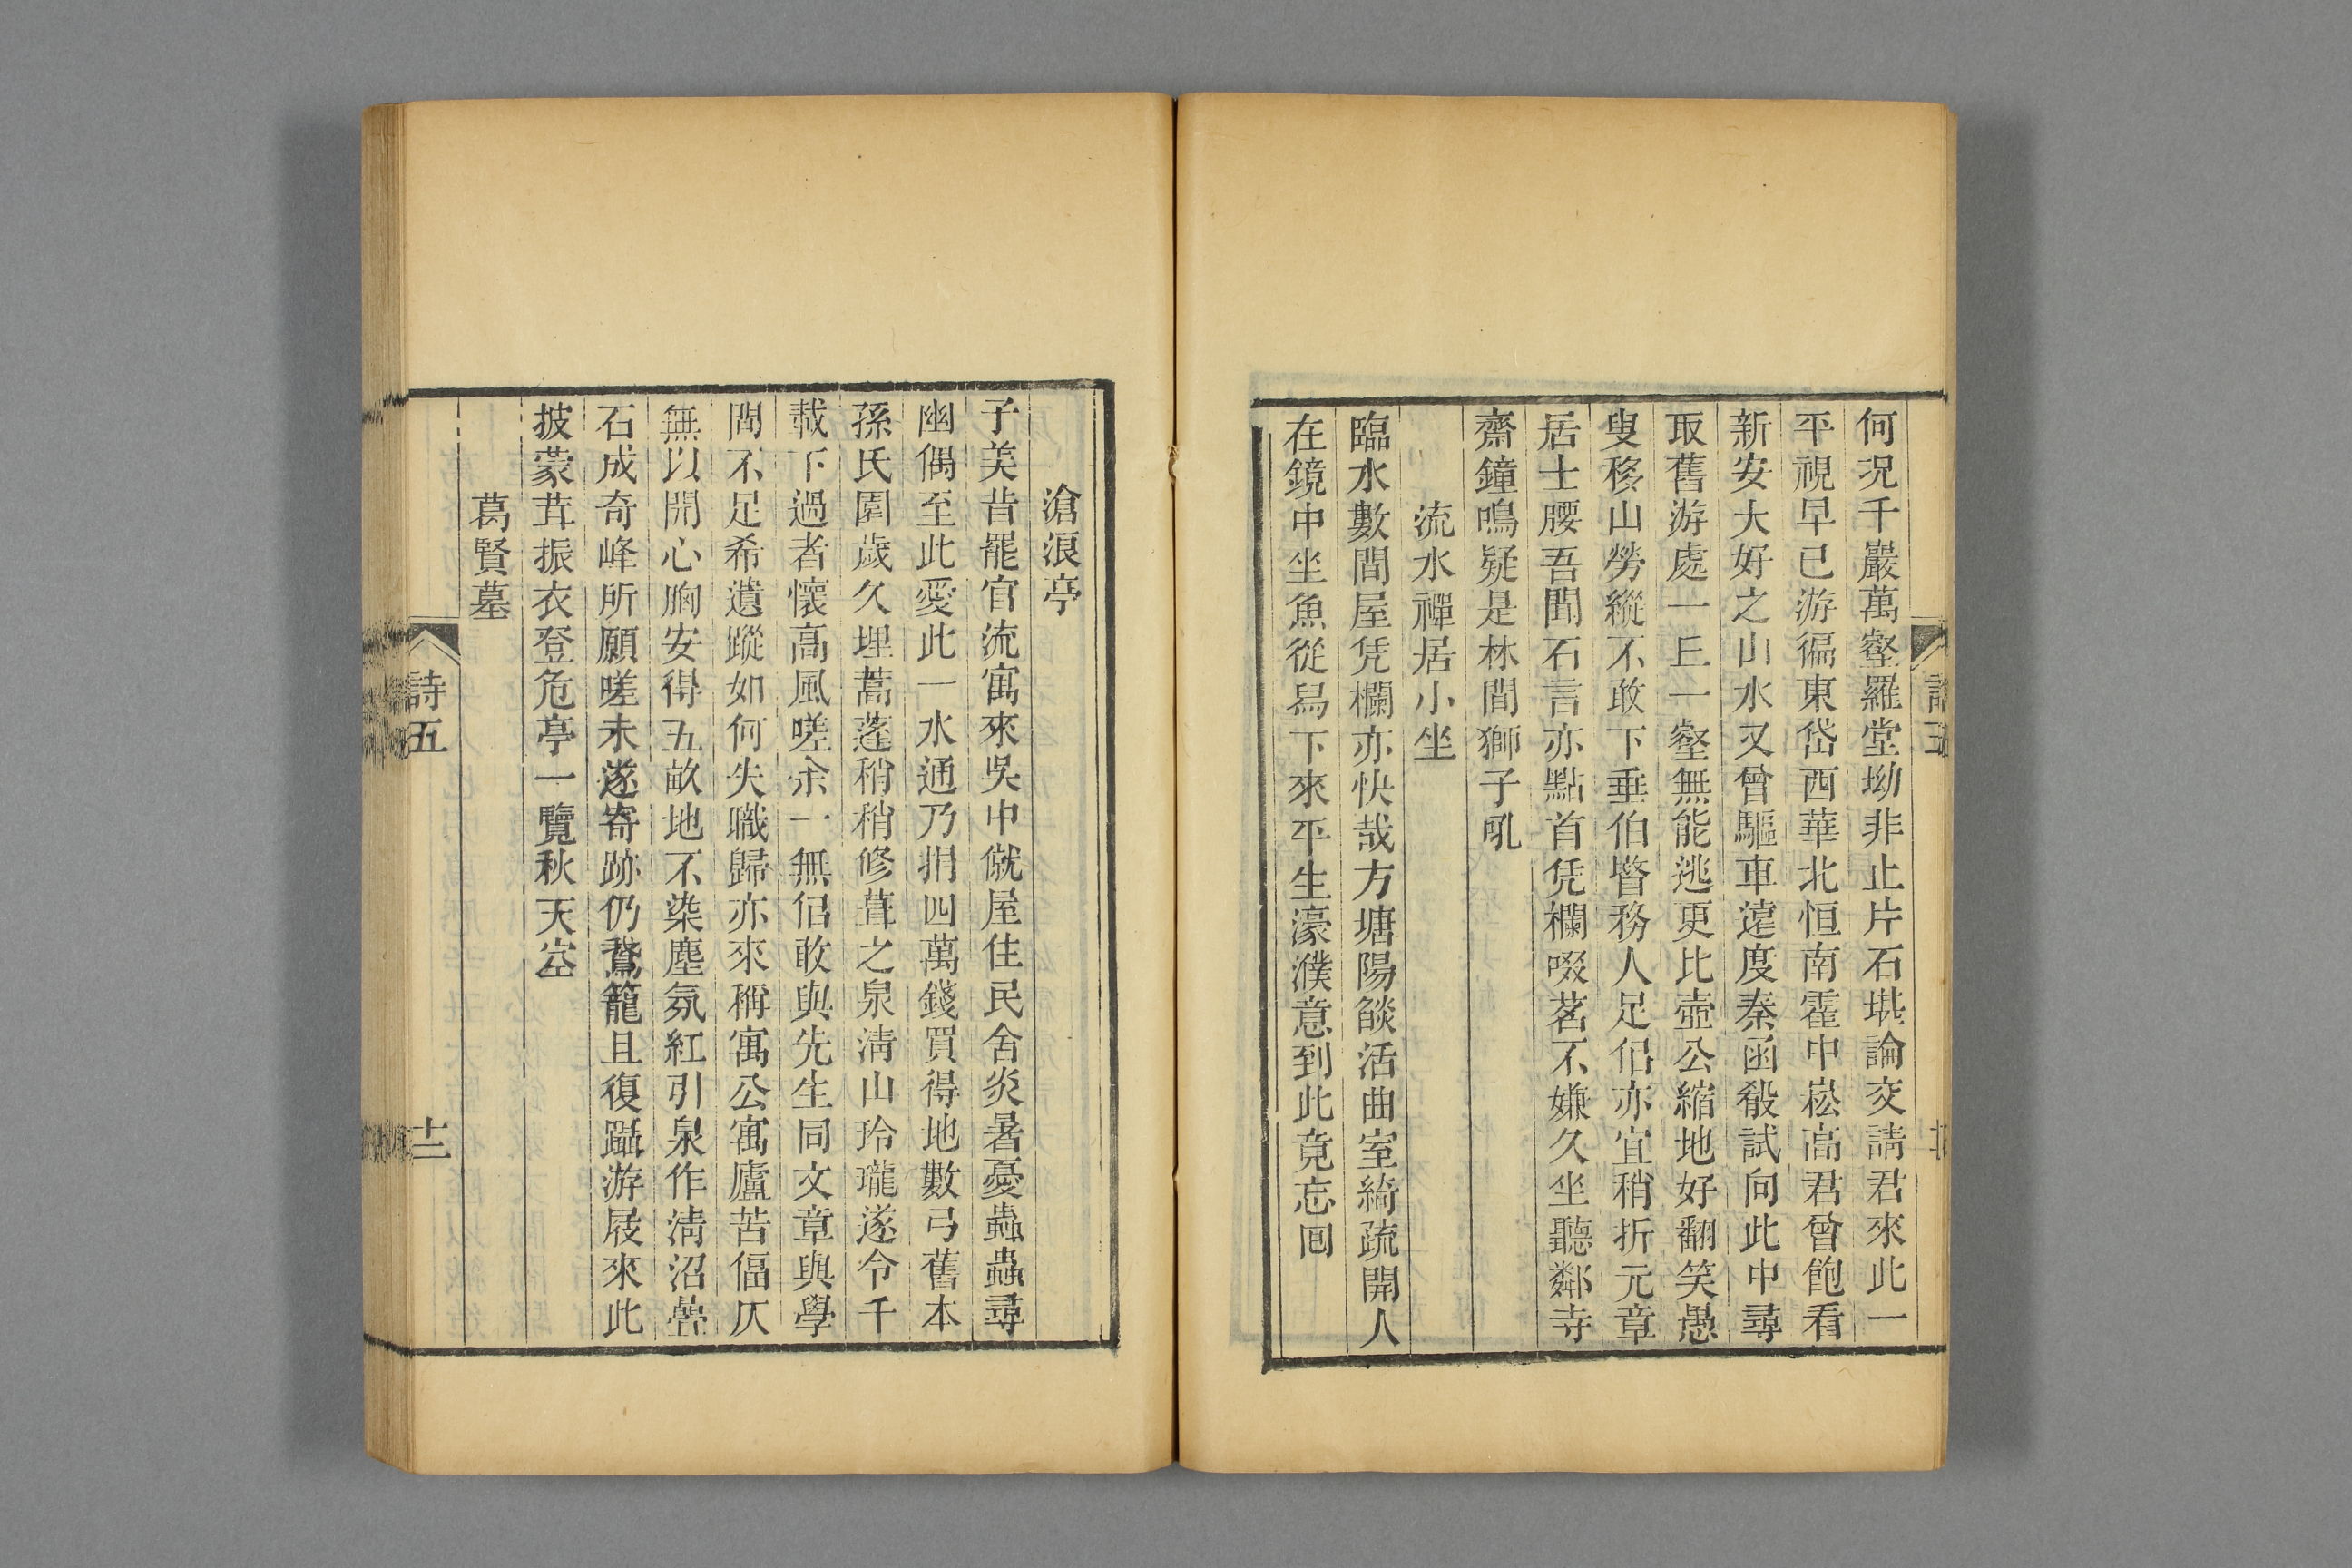 何況千巖萬壑羅堂坳非止片石堪論交請君來此一
平視早已游徧東岱西華北恒南霍中崧高君曾飽看
新安大好之山水又曾驅車遠度秦函殽試向此中尋
取舊游處一丘一壑無能逃更比壺公縮地好翻笑愚
叟移山勞縱不敢下垂伯瞀務人足侶亦宜稍折元章
居士腰吾聞石言亦點首凭欄啜茗不嫌久坐聽鄰寺
齋鐘鳴疑是林間獅子吼
流水禪居小坐
臨水數間屋凭欄亦快哉方塘陽燄活曲室綺疏開人
在鏡中坐魚從舄下來平生濠濮意到此竟忘回
滄浪亭
子美昔罷官流寓來吳中僦屋住民舍炎暑憂蟲蟲尋
幽偶至此愛此一水通乃捐四萬錢買得地數弓舊本
孫氏園歲久埋蒿蓬稍稍修葺之泉清山玲瓏遂令千
載下過者懷高風嗟余一無侣敢與先生同文章與學
問不足希遺蹤如何失職歸亦來稱寓公寓廬苦偪仄
無以開心胸安得五畝地不染塵氛紅引泉作清沼疊
石成奇峰所願嗟未遂寄跡仍鵞籠且復躡游屐來此
披蒙茸振衣登危亭一覽秋天空
葛賢墓
詩五
十二